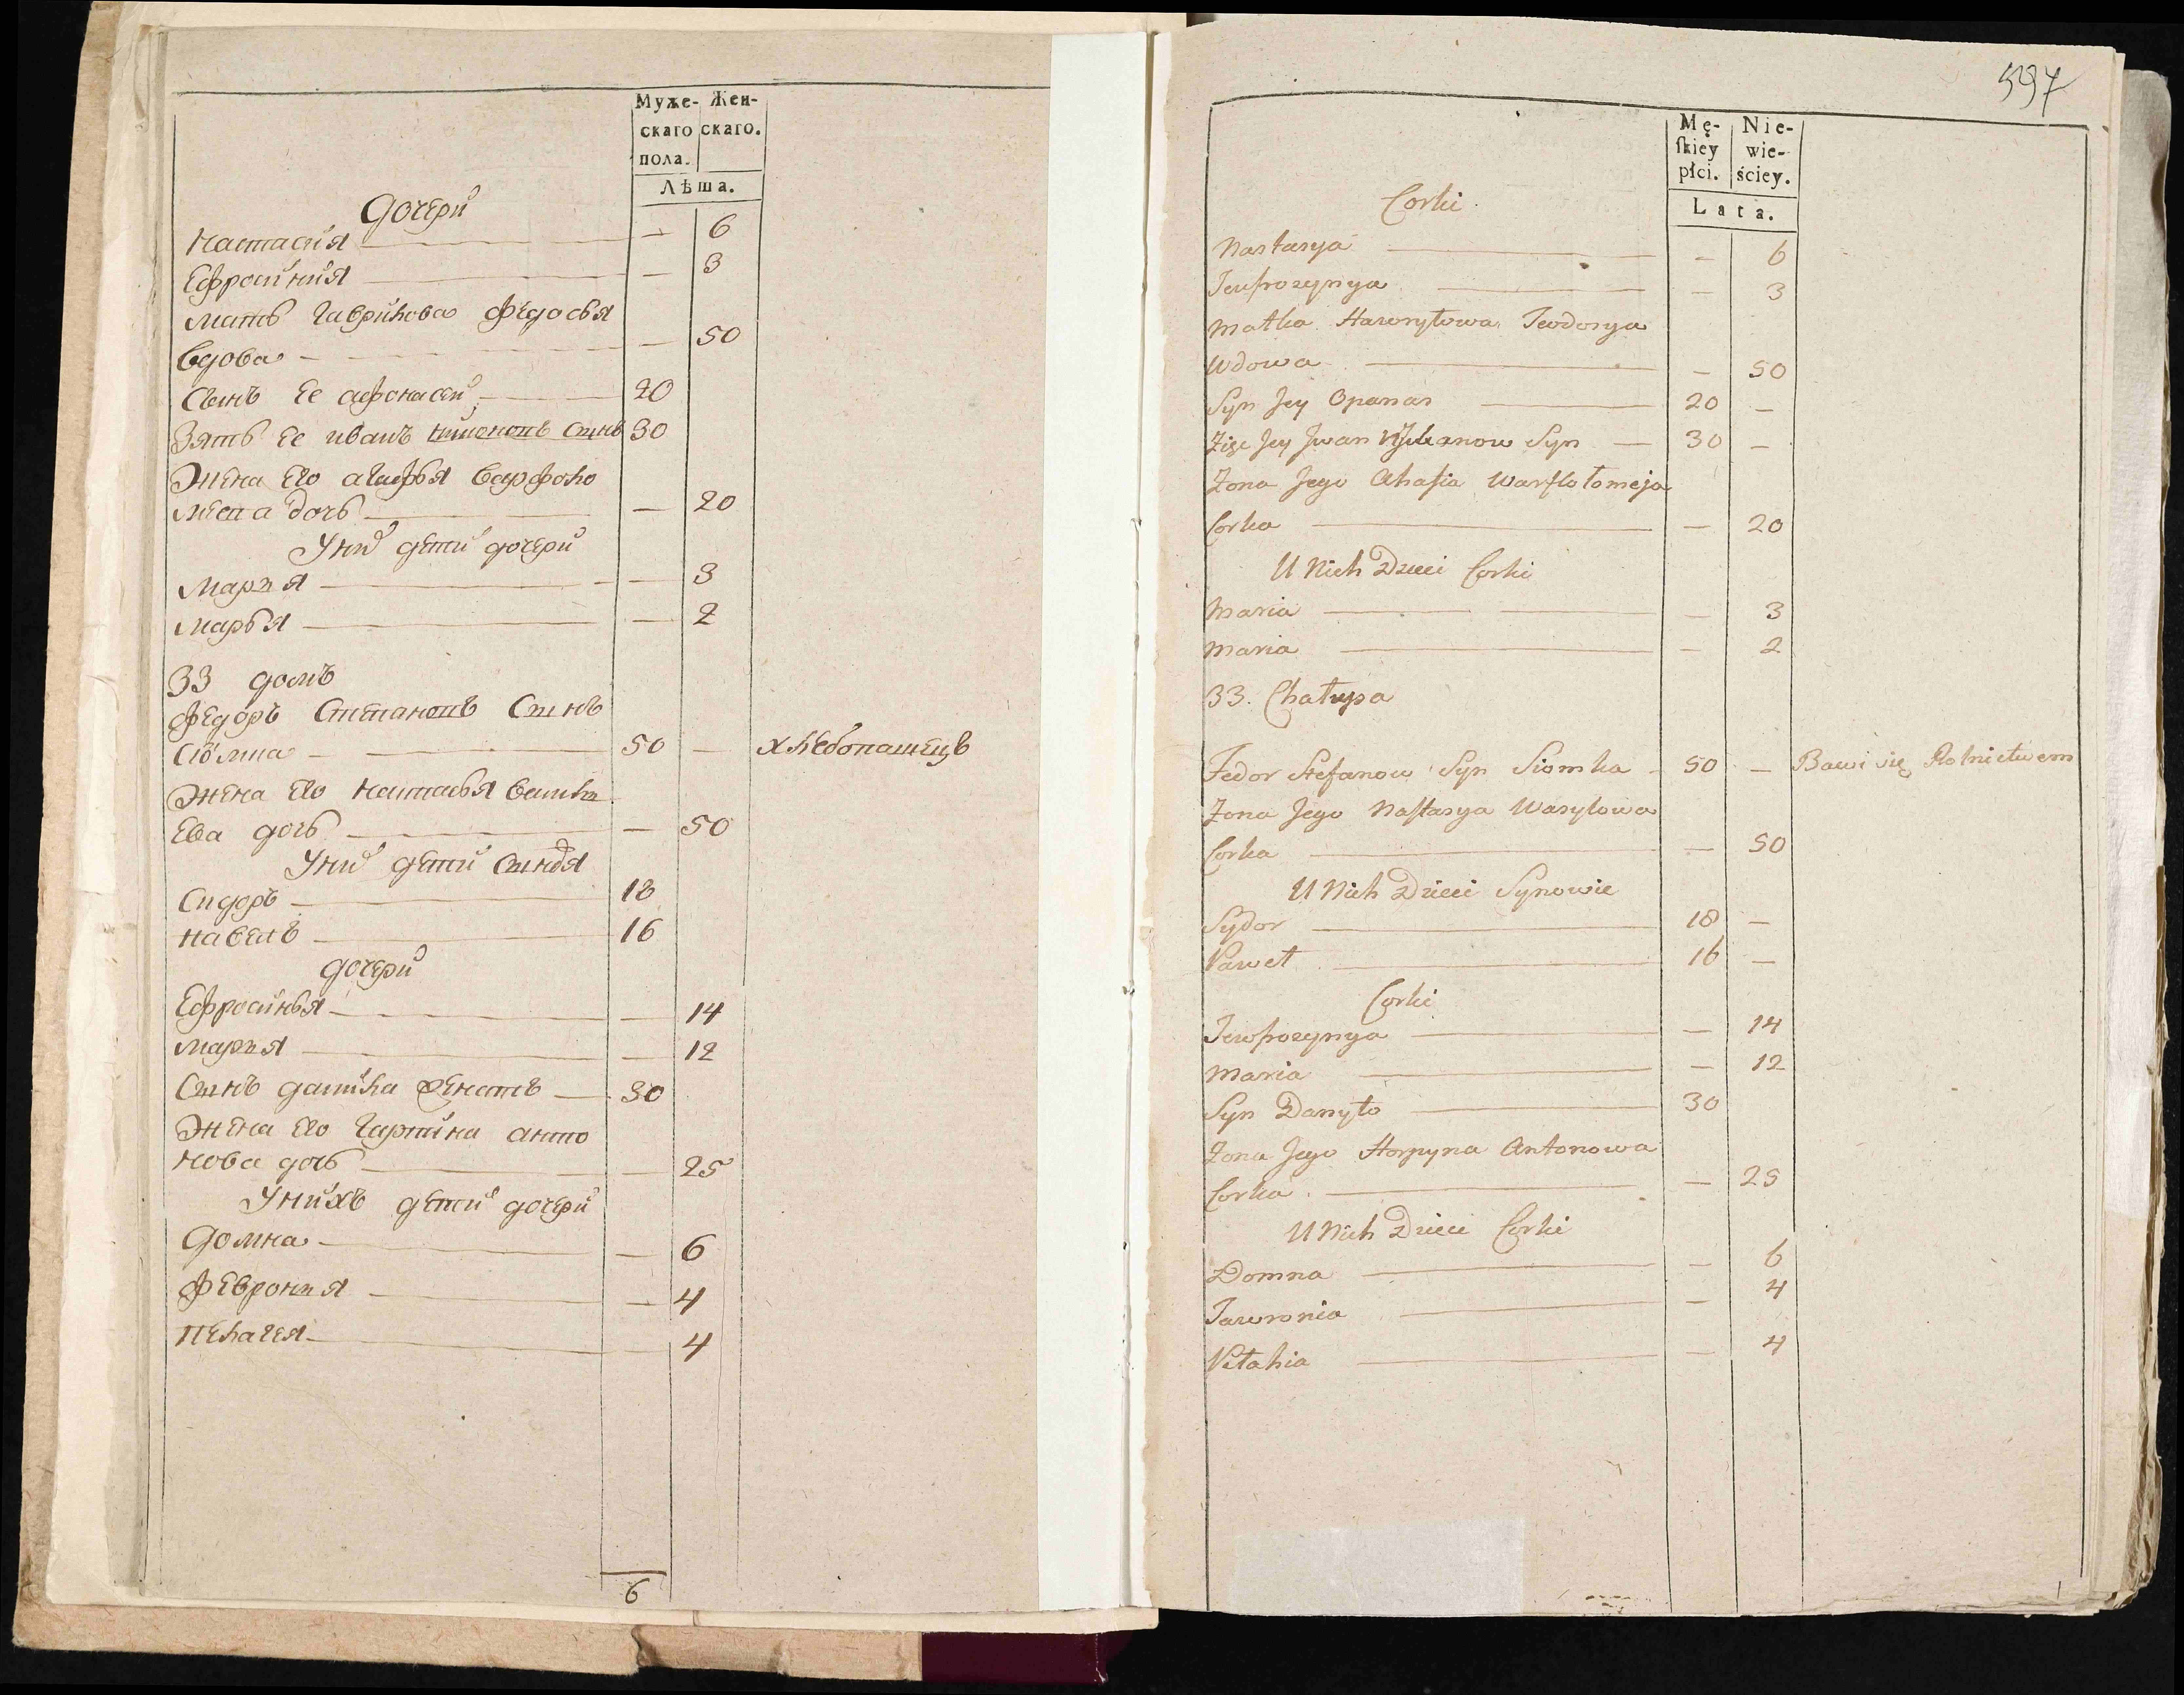 Муже- Жен-
скаго скаго.
пола.
Лѣта.
Дочери
Настасия — 6
Ефросиния — 3
Мать Гаврилова Федосья
вдова — 50
Сынъ Ее афонасей 20
Зять Ее иванъ сынъ 30
Жена Его агафья варфоло
меева дочь — 20
У нихъ дети дочери
Мария — 3
Марья — 2
33 домъ
Федоръ Степановъ Сынъ
Сіомка 50 — хлебопашецъ
Жена Его Настасья васил
Ева дочь — 50
У нихъ дети сыновья
Сидоръ 18
Павелъ 16
дочери
Ефросинья — 14
Мария — 12
Сынъ данила женатъ 30
Жена Его Гарпина анто
нова дочь — 25
У нихъ дети дочери
Домна — 6
Феврония — 4
Пелагея — 4
6
597
Mę- Nie-
ſkiey wie-
płci. ściey.
Lata.
Corki
Nastasya — 6
Jewfrozynya — 3
Matka Hawryłowa Teodosya
Wdowa — 50
Syn Jey Opanas 20 —
Zięć Jey Jwan Syn 30 —
Zona Jego Ahafia Warfłołomeja
Corka — 20
U Nich Dzieci Corki
Maria — 3
Maria — 2
33. Chałupa
Fedor Stefanow Syn Siomka 50 — Bawi się Rolnictwem
Zona Jego Nastasya Wasylowa
Corka — 50
U Nich Dzieci Synowie
Sydor 18 —
Paweł 16 —
Corki
Jewfrozynya — 14
Maria — 12
Syn Danyło 30
Zona Jego Horpyna Antonowa
Corka — 25
U Nich Dzieci Corki
Domna — 6
Jawronia — 4
Pełahia — 4